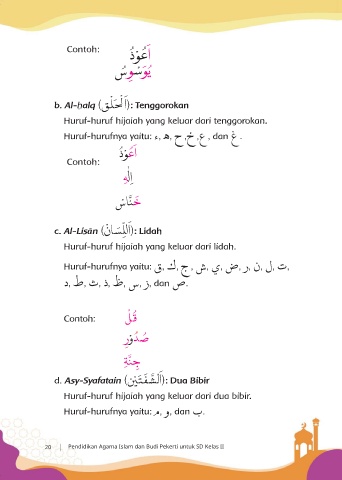 Contoh:
أَعُوْذُ
يُوَسْوِسُ
b. Al-ḥalq (اَلْحَلْقُ): Tenggorokan
Huruf-huruf hijaiah yang keluar dari tenggorokan.
Huruf-hurufnya yaitu: ء, ه, ح, خ, ع, dan غ.
Contoh:
أَعُوْذُ
إِلٰهِ
خَنَّاسْ
c. Al-Lisān (اَللِّسَانُ): Lidah
Huruf-huruf hijaiah yang keluar dari lidah.
Huruf-hurufnya yaitu: ق, ك, ج, ش, ي, ض, ر, ن, ل, ت,
د, ط, ث, ذ, ظ, س, ز, dan ص.
Contoh:
قُلْ
صُدُوْرِ
جِنَّةِ
d. Asy-Syafatain (اَلشَّفَتَيْنِ): Dua Bibir
Huruf-huruf hijaiah yang keluar dari dua bibir.
Huruf-hurufnya yaitu: م, و, dan ب.
20 | Pendidikan Agama Islam dan Budi Pekerti untuk SD Kelas II